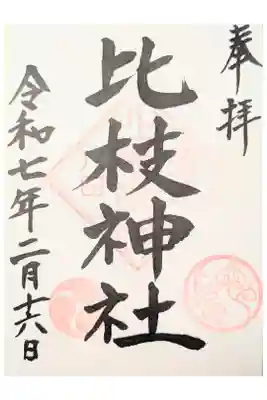 奉拝
比枝神社
令和七年二月十六日